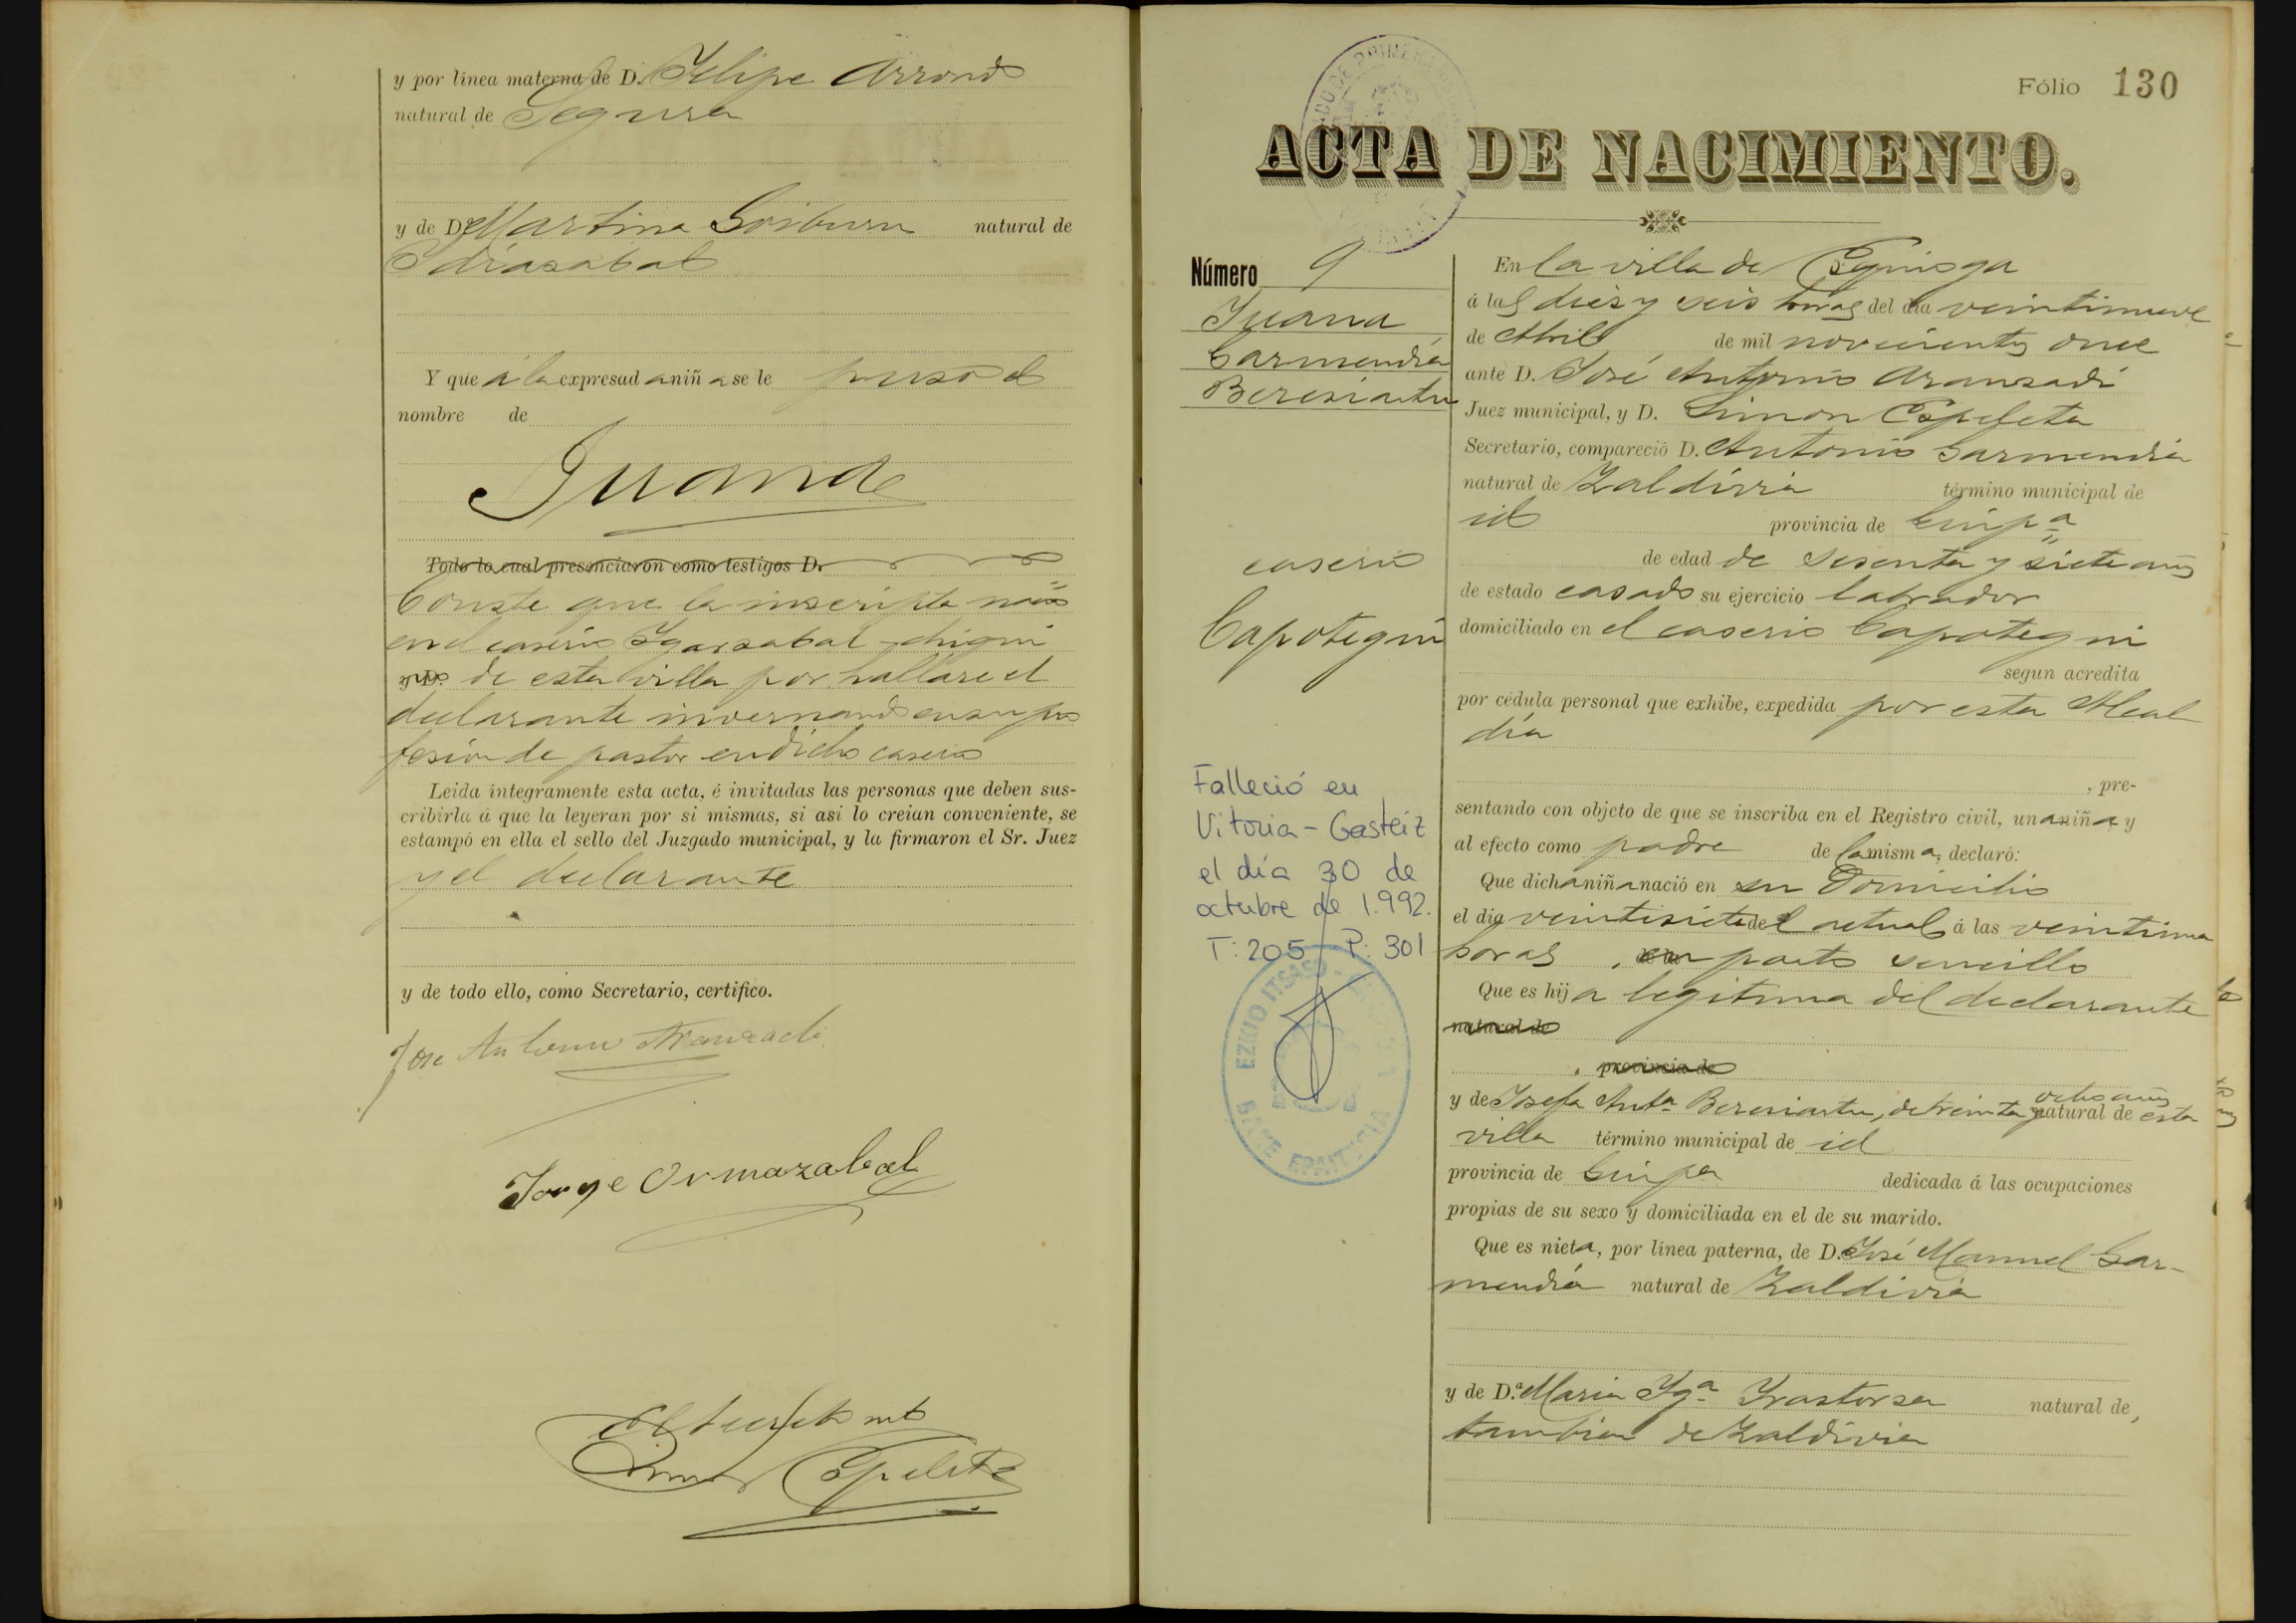 y por línea materna de D. Felipe Arrond
natural de Segura
y de D.ª Martina Goiburu natural de
Ydiasabal
Y que á la expresad a niñ a se le puso el
nombre de
Juana
Todo lo cual presenciaron como testigos D.
Conste que la inscripta nació
en el caserío Ygarzabal-chiqui
y D. de esta villa por hallarse el
declarante invernando en su pro
fesión de pastor en dicho caserio
Leida íntegramente esta acta, é invitadas las personas que deben sus-
cribirla á que la leyeran por si mismas, si asi lo creian conveniente, se
estampó en ella el sello del Juzgado municipal, y la firmaron el Sr. Juez
y el declarante
y de todo ello, como Secretario, certifico.
Jose Antonio Aranzadi
Jorge Ormazabal
Simon Espeleta
Fólio 130
ACTA DE NACIMIENTO.
Número 9
Juana
Garmendia
Beresiartu
caserio
Capotegui
Falleció en
Vitoria-Gasteiz
el día 30 de
octubre de 1.992.
T: 205 P: 301
EZKIO ITSASO
BAKE EPAITEGIA
En la villa de Ezquioga
á las diez y seis horas del dia veintinueve
de Abril de mil novecientos once
ante D. José Antonio Aranzadi
Juez municipal, y D. Simon Espeleta
Secretario, compareció D. Antonio Garmendia
natural de Zaldivia término municipal de
id provincia de Guipª
de edad de sesenta y siete años
de estado casado su ejercicio labrador
domiciliado en el caserio Capotegui
segun acredita
por cédula personal que exhibe, expedida por esta Alcal
día
, pre-
sentando con objeto de que se inscriba en el Registro civil, un a niñ a y
al efecto como padre de la mism a, declaró:
Que dich a niñ a nació en su domicilio
el dia veintisiete del actual á las veintiuna
horas , en parto sencillo
Que es hij a legítima del declarante
natural de
, provincia de
y de Josefa Antª Beresiartu, de treinta y ocho años natural de esta
villa término municipal de id
provincia de Guipª dedicada á las ocupaciones
propias de su sexo y domiciliada en el de su marido.
Que es niet a, por línea paterna, de D. José Manuel Gar-
mendia natural de Zaldivia
y de D.ª Maria Ygª Yrastorza natural de,
tambien de Zaldivia